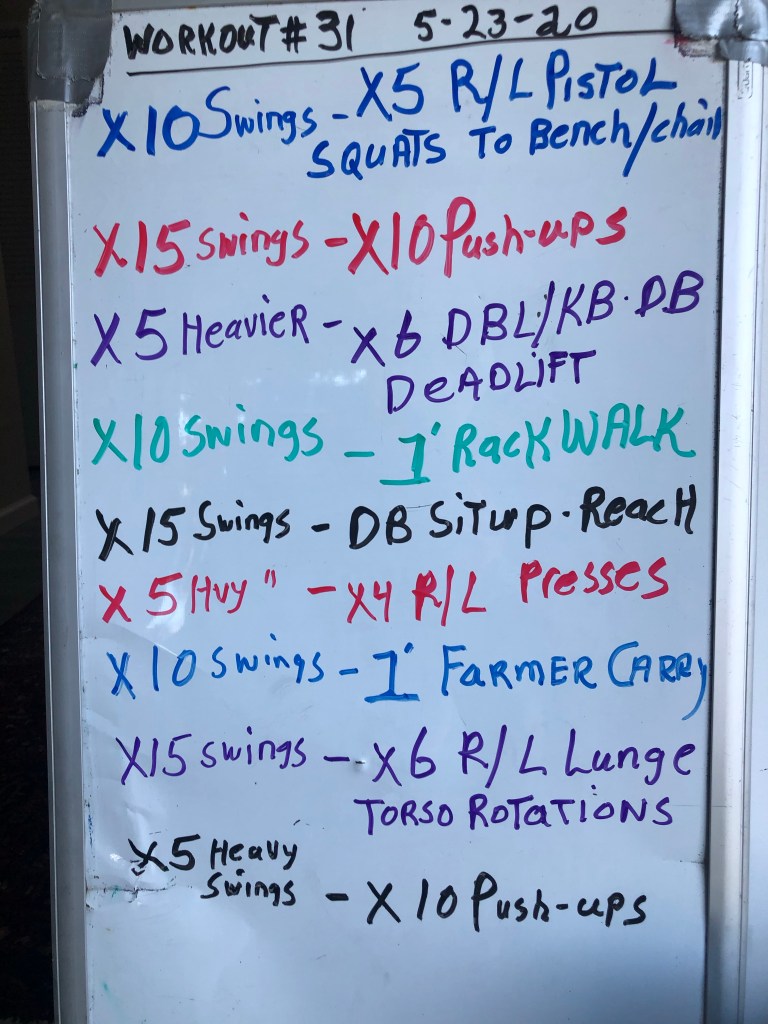 WORKOUT # 31 5-23-20
X10 Swings - X5 R/L PISTOL
SQUATS TO Bench/chair
X15 swings - X10 Push-ups
X5 HeavieR - X6 DBL/KB·DB
DEADLIFT
X10 swings - 1' Rack WALK
X15 Swings - DB SiTup·ReacH
X5 Hvy " - X4 R/L Presses
X10 swings - 1' FARMER CARRy
X15 swings - X6 R/L Lunge
TORSO ROTATIONS
X5 Heavy
Swings - X10 Push-ups